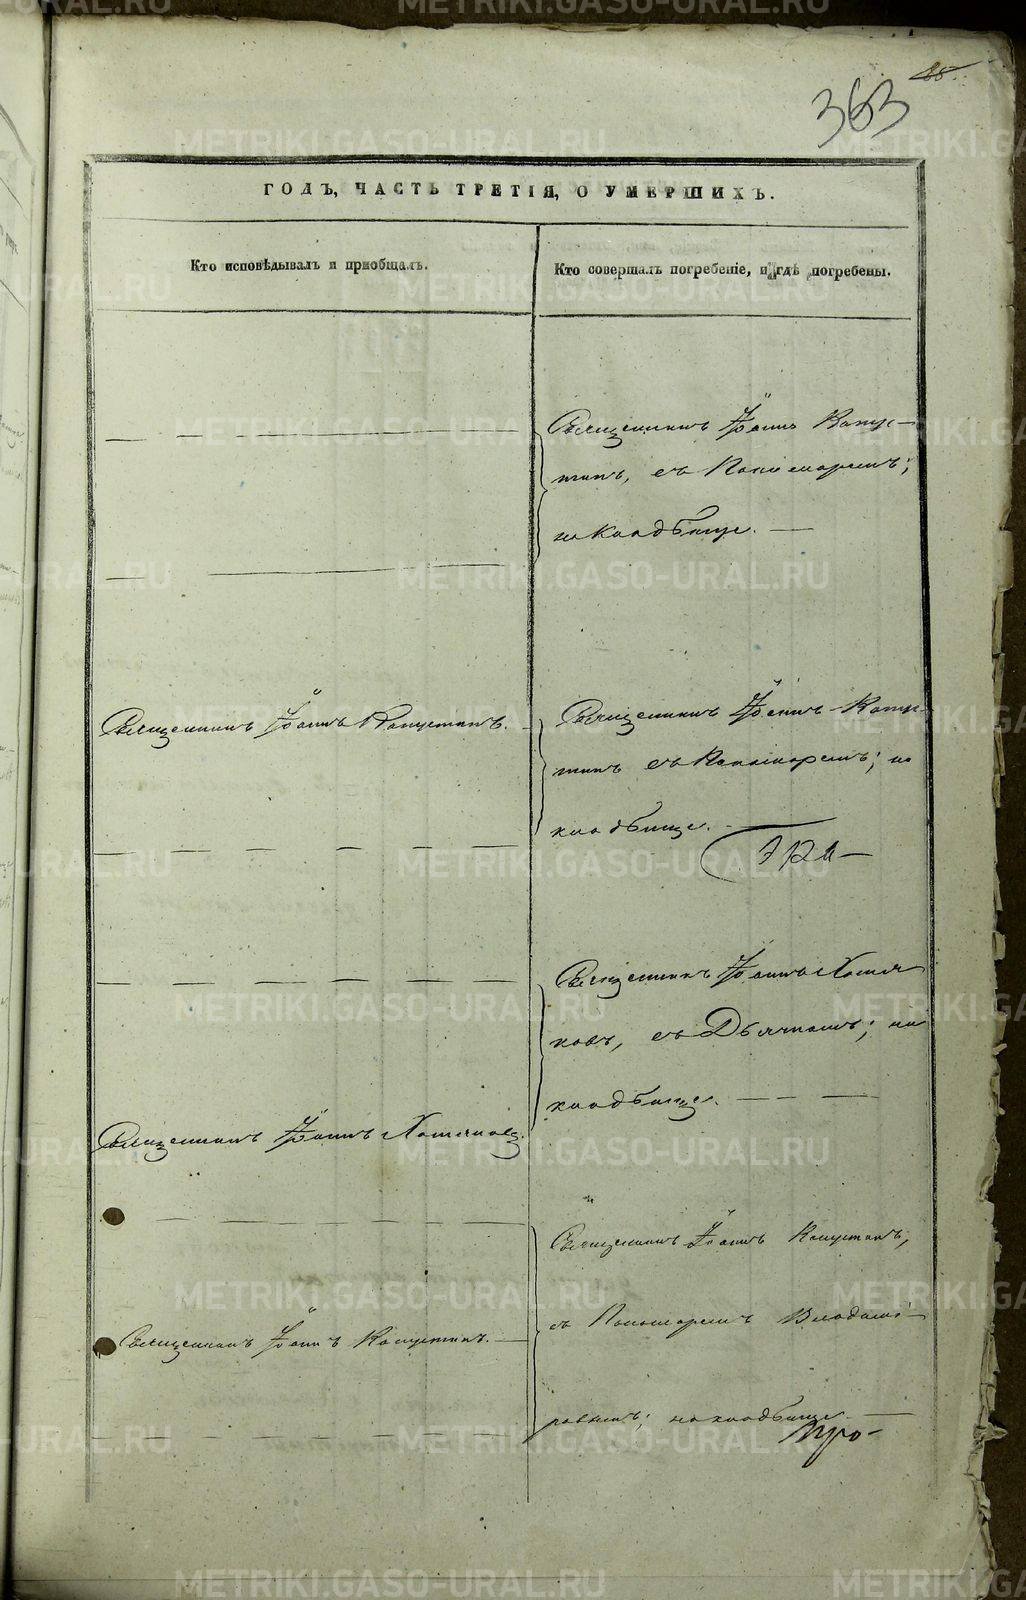 88.
363
ГОДЪ, ЧАСТЬ ТРЕТІЯ, О УМЕРШИХЪ.
Кто исповѣдывалъ и пріобщалъ.
Кто совершалъ погребеніе, и гдѣ погребены.
Священникъ Іоаннъ Капус-
тинъ, съ Пономаремъ;
на кладбищѣ.
Священникъ Іоаннъ Капустинъ.
Священникъ Іоаннъ Капус-
тинъ съ Пономаремъ; на
кладбищѣ.
Священникъ Іоаннъ Хотя-
ковъ, съ Дьячкомъ; на
кладбищѣ.
Священникъ Іоаннъ Хотяковъ.
Священникъ Іоаннъ Капустинъ,
съ Пономаремъ
Священникъ Іоаннъ Капустинъ.
на кладбищѣ
METRIKI.GASO-URAL.RU